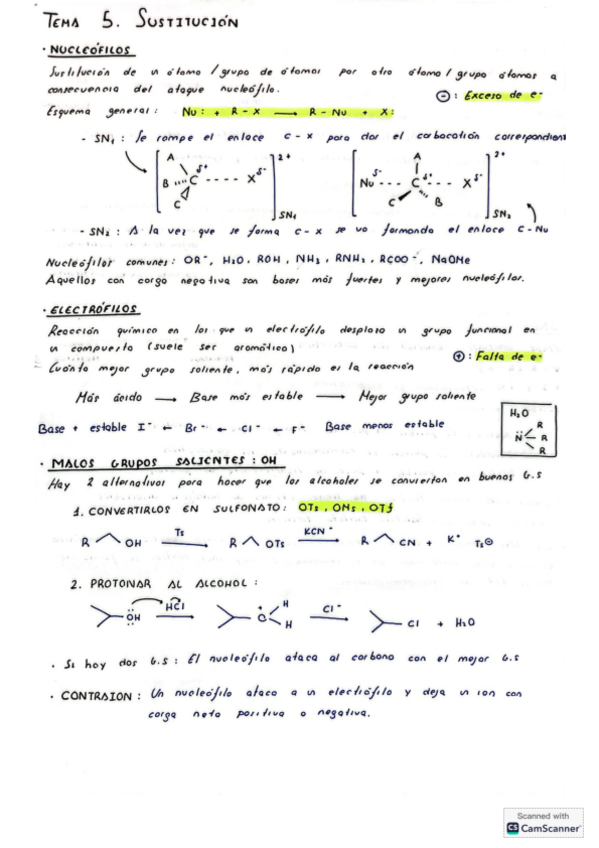 TEMA 5. SUSTITUCIÓN
· NUCLEÓFILOS
Sustitución de un átomo / grupo de átomos por otro átomo / grupo átomos a
consecuencia del ataque nucleófilo.
⊖ : Exceso de e-
Esquema general : Nu : + R - X → R - Nu + X :
- SN1 : Se rompe el enlace C - X para dar el carbocatión correspondient
A B C C δ+ X δ- 2+ SN1
Nu δ- A C δ+ X δ- C B 2+ SN2
- SN2 : A la vez que se forma C - X se va formando el enlace C - Nu
Nucleófilos comunes : OR-, H2O, ROH, NH3, RNH2, RCOO-, NaOMe
Aquellos con carga negativa son bases más fuertes y mejores nucleófilos.
· ELECTRÓFILOS
Reacción química en los que un electrófilo desplaza un grupo funcional en
un compuesto (suele ser aromático)
⊕ : Falta de e-
Cuánto mejor grupo saliente, más rápido es la reacción
Más ácido → Base más estable → Mejor grupo saliente
H2O
N R R R
Base + estable I- ← Br- ← Cl- ← F- Base menos estable
· MALOS GRUPOS SALIENTES : OH
Hay 2 alternativas para hacer que los alcoholes se conviertan en buenos G.S
1. CONVERTIRLOS EN SULFONATO : OTs, OMs, OTf
R OH Ts → R OTs KCN → R CN + K+ Ts⊖
2. PROTONAR AL ALCOHOL :
OH HCl → O+ H H Cl- → Cl + H2O
· Si hay dos G.S : El nucleófilo ataca al carbono con el mejor G.S
· CONTRAION : Un nucleófilo ataca a un electrófilo y deja un ion con
carga neta positiva o negativa.
Scanned with
CS CamScanner